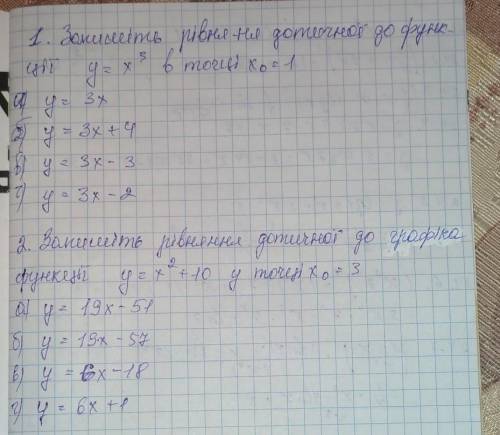 1. Запишіть рівня-ння дотичної до функ-
ції y = x³ в точці x₀ = 1
а) y = 3x
б) y = 3x + 4
в) y = 3x - 3
г) y = 3x - 2
2. Запишіть рівняння дотичної до графіка
функції y = x² + 10 у точці x₀ = 3
а) y = 19x - 51
б) y = 19x - 57
в) y = 6x - 18
г) y = 6x + 1